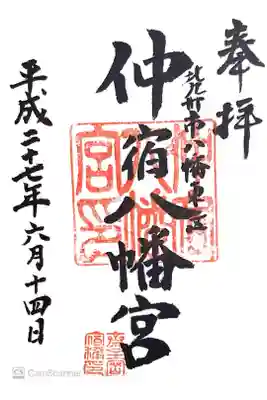 奉拝
北九州市八幡東区
仲宿八幡宮
平成二十七年六月十四日
CamScanner